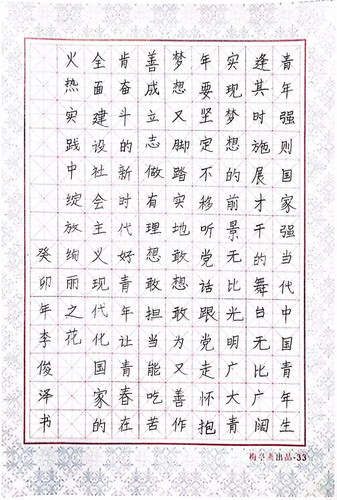 青年强则国家强当代中国青年生
逢其时施展才干的舞台无比广阔
实现梦想的前景无比光明广大青
年要坚定不移听党话跟党走怀抱
梦想又脚踏实地敢想敢为又善作
善成立志做有理想敢担当能吃苦
肯奋斗的新时代好青年让青春在
全面建设社会主义现代化国家的
火热实践中绽放绚丽之花
癸卯年李俊泽书
出品-33